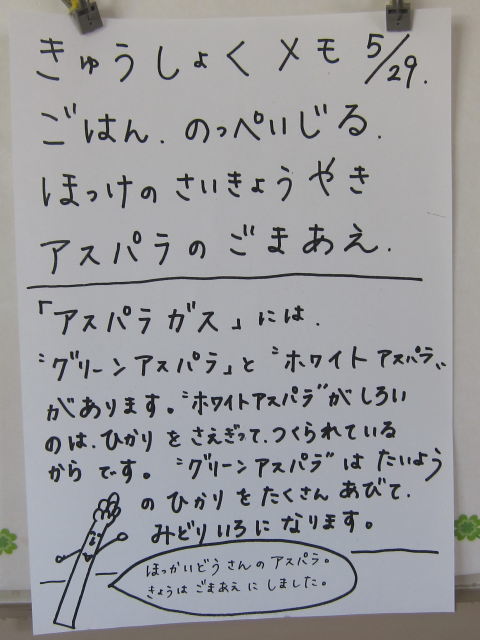 きゅうしょくメモ 5/29.
ごはん. のっぺいじる.
ほっけの さいきょうやき
アスパラの ごまあえ.
「アスパラガス」には、
〝グリーンアスパラ」と 〝ホワイトアスパラ〟
があります。〝ホワイトアスパラ〟が しろい
のは、ひかりを さえぎって、つくられている
からです。〝グリーンアスパラ〟は たいよう
の ひかりを たくさん あびて、
みどりいろに なります。
ほっかいどうさんの アスパラ。
きょうは ごまあえ に しました。